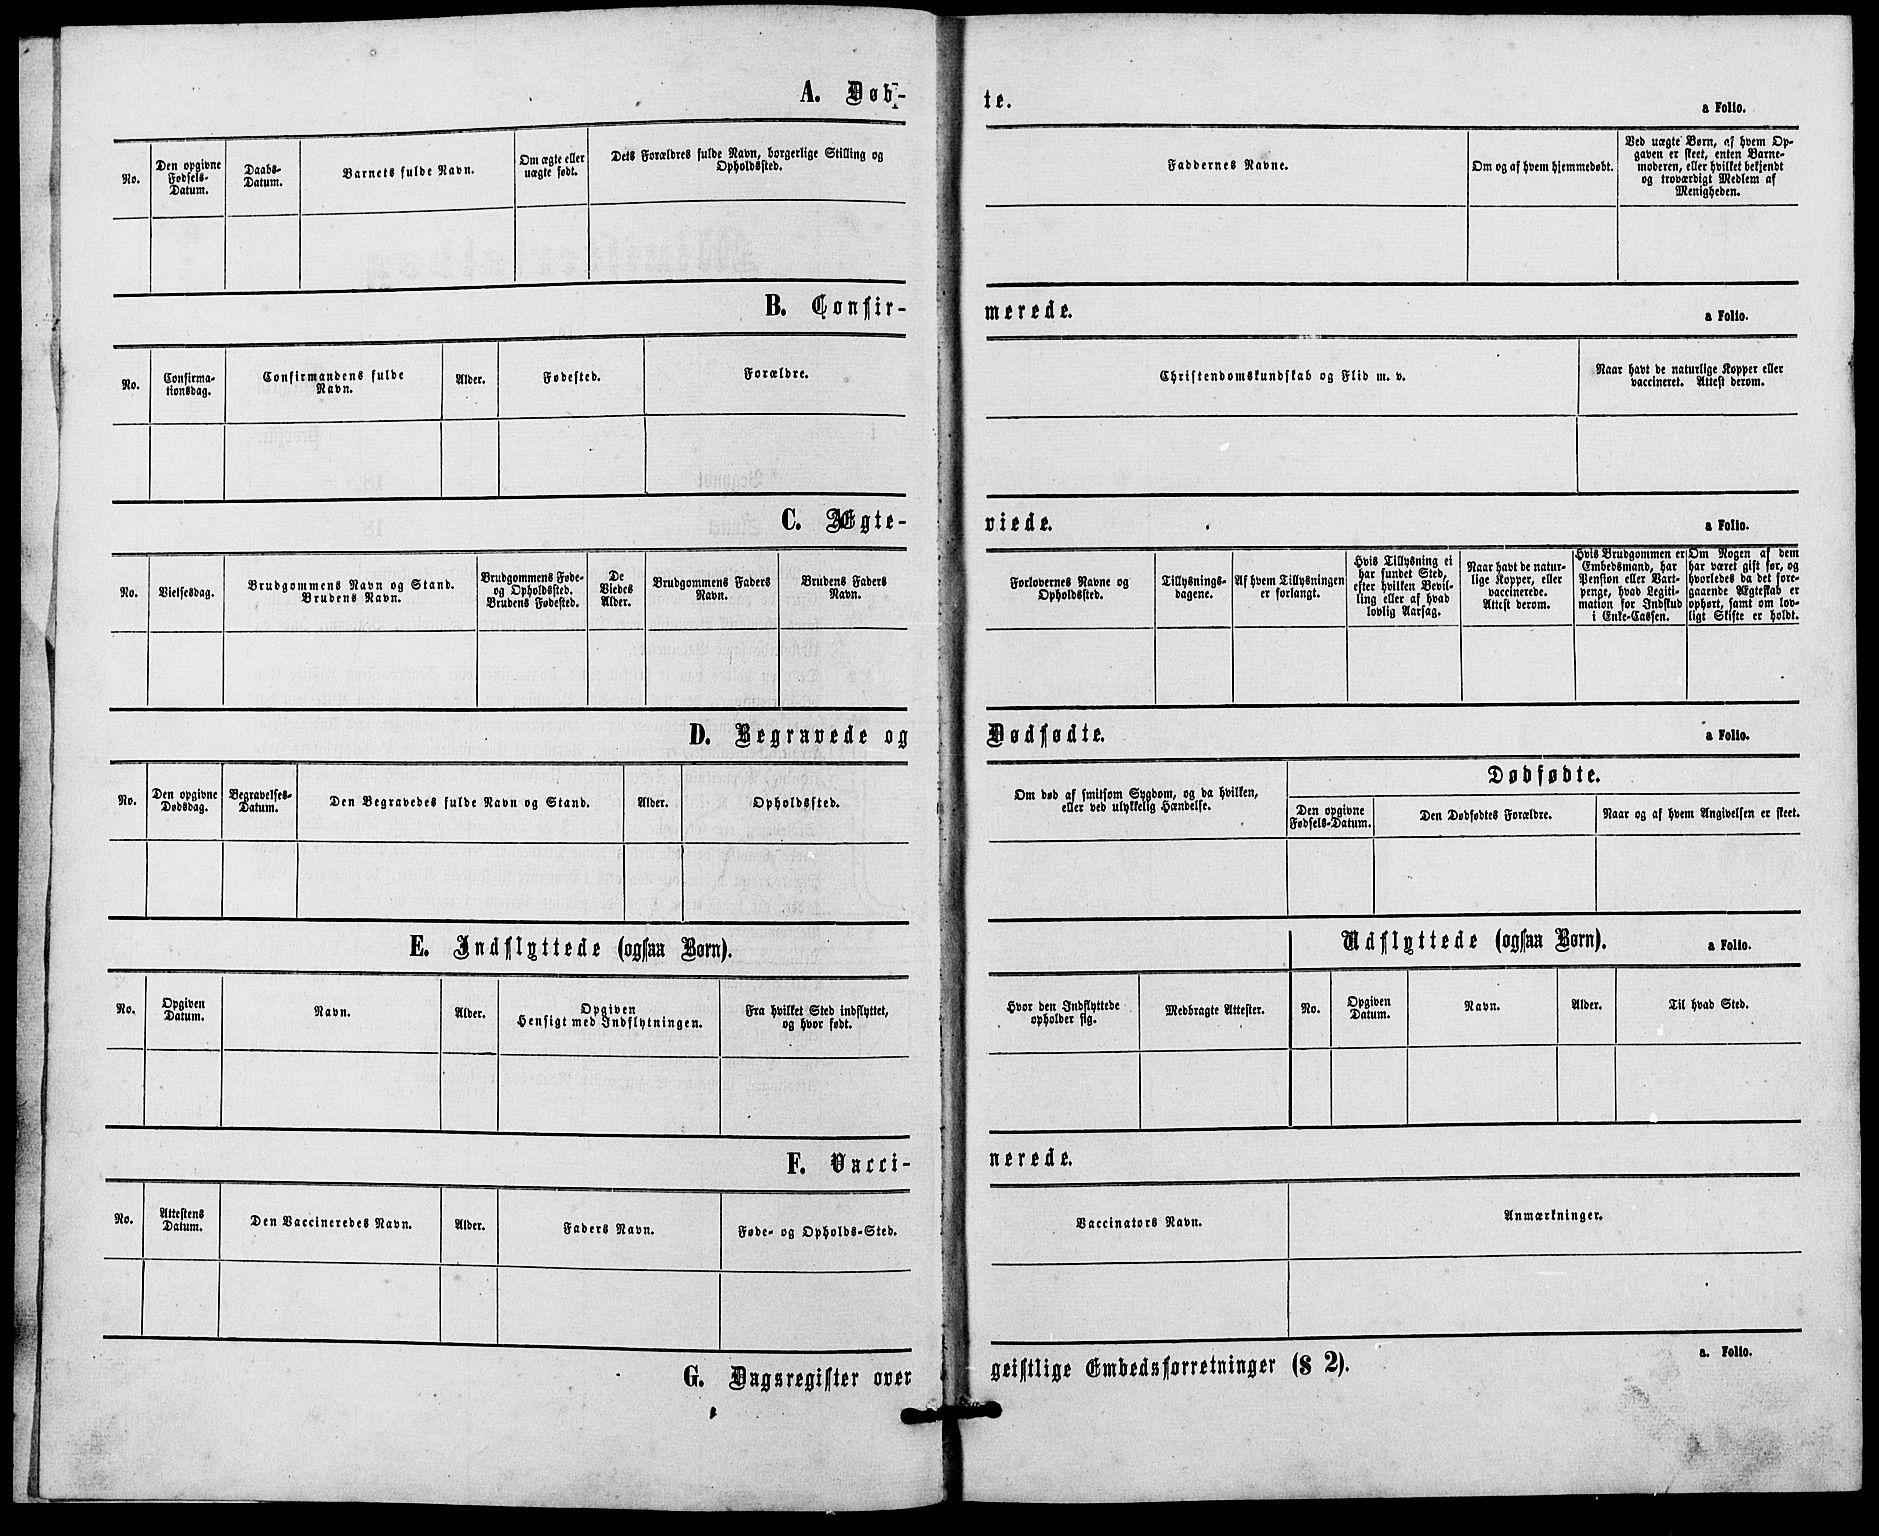 A. Døb-te. a Folio.
No.
Den opgivne
Fødsels-
Datum.
Daabs-
Datum.
Barnets fulde Navn.
Om ægte eller
uægte født.
Dets Forældres fulde Navn, borgerlige Stilling og
Opholdssted.
Faddernes Navne.
Om og af hvem hjemmedøbt.
Ved uægte Børn, af hvem Op-
gaven er skeet, enten Barne-
moderen, eller hvilket bekjendt
og troværdigt Medlem af
Menigheden.
B. Confir-merede. a Folio.
No.
Confirma-
tionsdag.
Confirmandens fulde
Navn.
Alder.
Fødested.
Forældre.
Christendomskundskab og Flid m. v.
Naar havt de naturlige Kopper eller
vaccineret. Attest derom.
C. Ægte-viede. a Folio.
No.
Vielsesdag.
Brudgommens Navn og Stand.
Brudens Navn.
Brudgommens Føde-
og Opholdssted.
Brudens Fødested.
De
Viedes
Alder.
Brudgommens Faders
Navn.
Brudens Faders
Navn.
Forlovernes Navne og
Opholdssted.
Tillysnings-
dagene.
Af hvem Tillysningen
er forlangt.
Hvis Tillysning ei
har fundet Sted,
efter hvilken Bevil-
ling eller af hvad
lovlig Aarsag.
Naar havt de natur-
lige Kopper, eller
vaccinerede.
Attest derom.
Hvis Brudgommen er
Embedsmand, har
Pension eller Vart-
penge, hvad Legiti-
mation for Indskud
i Enke-Cassen.
Om Nogen af dem
har været gift før, og
hvorledes da det fore-
gaaende Ægteskab er
ophørt, samt om lov-
ligt Skifte er holdt.
D. Begravede og Dødfødte. a Folio.
No.
Den opgivne
Dødsdag.
Begravelses-
Datum.
Den Begravedes fulde Navn og Stand.
Alder.
Opholdssted.
Om død af smitsom Sygdom, og da hvilken,
eller ved ulykkelig Hændelse.
Dødfødte.
Den opgivne
Fødsels-Datum.
Den Dødfødtes Forældre.
Naar og af hvem Angivelsen er skeet.
E. Indflyttede (ogsaa Børn).
Udflyttede (ogsaa Børn). a Folio.
No.
Opgiven
Datum.
Navn.
Alder.
Opgiven
Hensigt med Indflytningen.
Fra hvilket Sted indflyttet,
og hvor født.
Hvor den Indflyttede
opholder sig.
Medbragte Attester.
No.
Opgiven
Datum.
Navn.
Alder.
Til hvad Sted.
F. Vacci-nerede.
No.
Attestens
Datum.
Den Vaccineredes Navn.
Alder.
Faders Navn.
Føde- og Opholds-Sted.
Vaccinators Navn.
Anmærkninger.
G. Dagsregister over geistlige Embedsforretninger (§ 2). a. Folio.